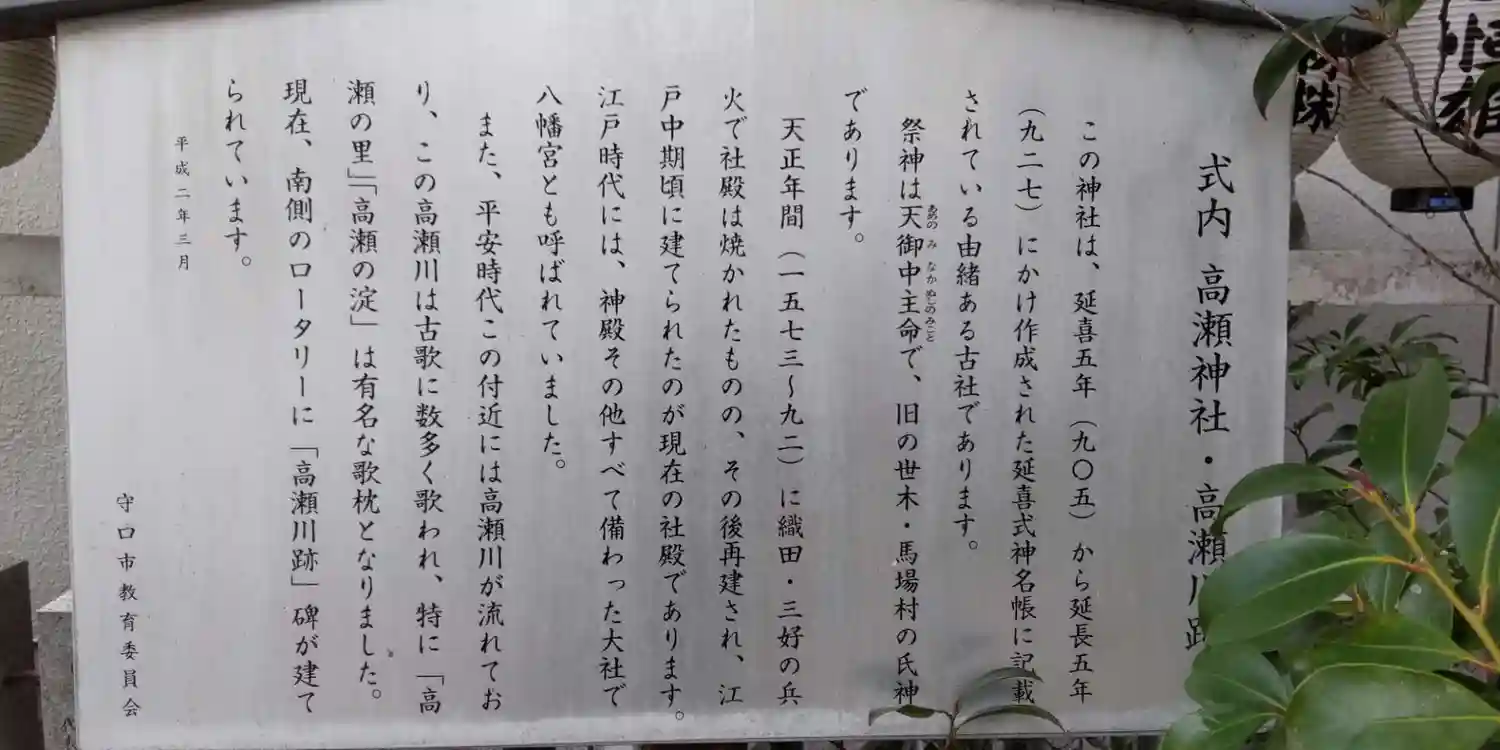 式内 高瀬神社・高瀬川跡
この神社は、延喜五年（九〇五）から延長五年
（九二七）にかけ作成された延喜式神名帳に記載
されている由緒ある古社であります。
祭神は天御中主命で、旧の世木・馬場村の氏神
あめの み なか ぬしのみこと
であります。
天正年間（一五七三～九二）に織田・三好の兵
火で社殿は焼かれたものの、その後再建され、江
戸中期頃に建てられたのが現在の社殿であります。
江戸時代には、神殿その他すべて備わった大社で
八幡宮とも呼ばれていました。
また、平安時代この付近には高瀬川が流れてお
り、この高瀬川は古歌に数多く歌われ、特に「高
瀬の里」「高瀬の淀」は有名な歌枕となりました。
現在、南側のロータリーに「高瀬川跡」碑が建て
られています。
平成二年三月
守口市教育委員会